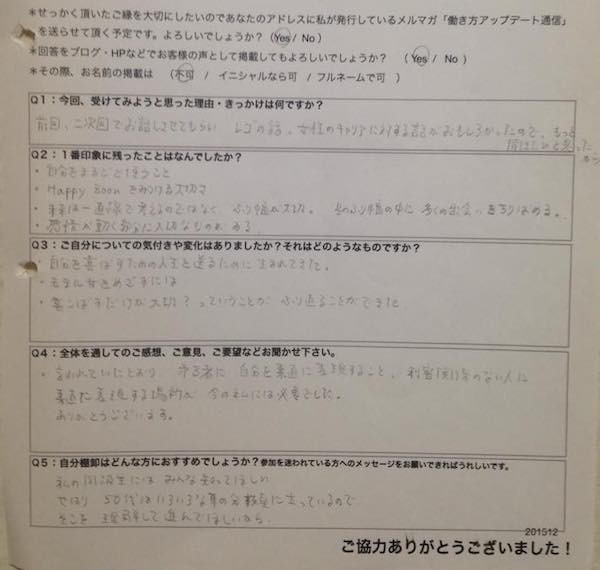 ＊せっかく頂いたご縁を大切にしたいのであなたのアドレスに私が発行しているメルマガ「働き方アップデート通信」
を送らせて頂く予定です。よろしいでしょうか？（Yes／ No）
＊回答をブログ・HPなどでお客様の声として掲載してもよろしいでしょうか？ （Yes ／ No ）
＊その際、お名前の掲載は （不可 ／ イニシャルなら可 ／ フルネームで可 ）
Q1：今回、受けてみようと思った理由・きっかけは何ですか？
前回、二次回でお話しさせてもらい レゴの話、女性のキャリアに対する話がおもしろかったので、もっと
聞きたいと思った
から
Q2：１番印象に残ったことはなんでしたか？
・自分をまるごと使うこと
・Happy Soon をみつける大切さ
・未来は一直線で考えるのではなく ふり幅が大切。 そのふり幅の中に 多くの出会いをちりばめる。
・感情が動く部分に大切なものがある
Q3：ご自分についての気付きや変化はありましたか？それはどのようなものですか？
・自分を喜ばすための人生を送るために生まれてきた。
・モテル女をめざすには
・喜こばすだけが大切？っていうことが ふり返ることができた
Q4：全体を通してのご感想、ご意見、ご要望などお聞かせ下さい。
・言われていたとおり 自分を素直に表現すること、利害関係のない人に
素直に表現する場所が 今の私には必要でした。
ありがとうございます。
Q5：自分棚卸はどんな方におすすめでしょうか？参加を迷われている方へのメッセージをお願いできればうれしいです。
私の同級生には みんな知ってほしい
やはり 50代はいろいろな事の分岐点に立っているので
そこを 理解して進んでほしいから
201512
ご協力ありがとうございました！